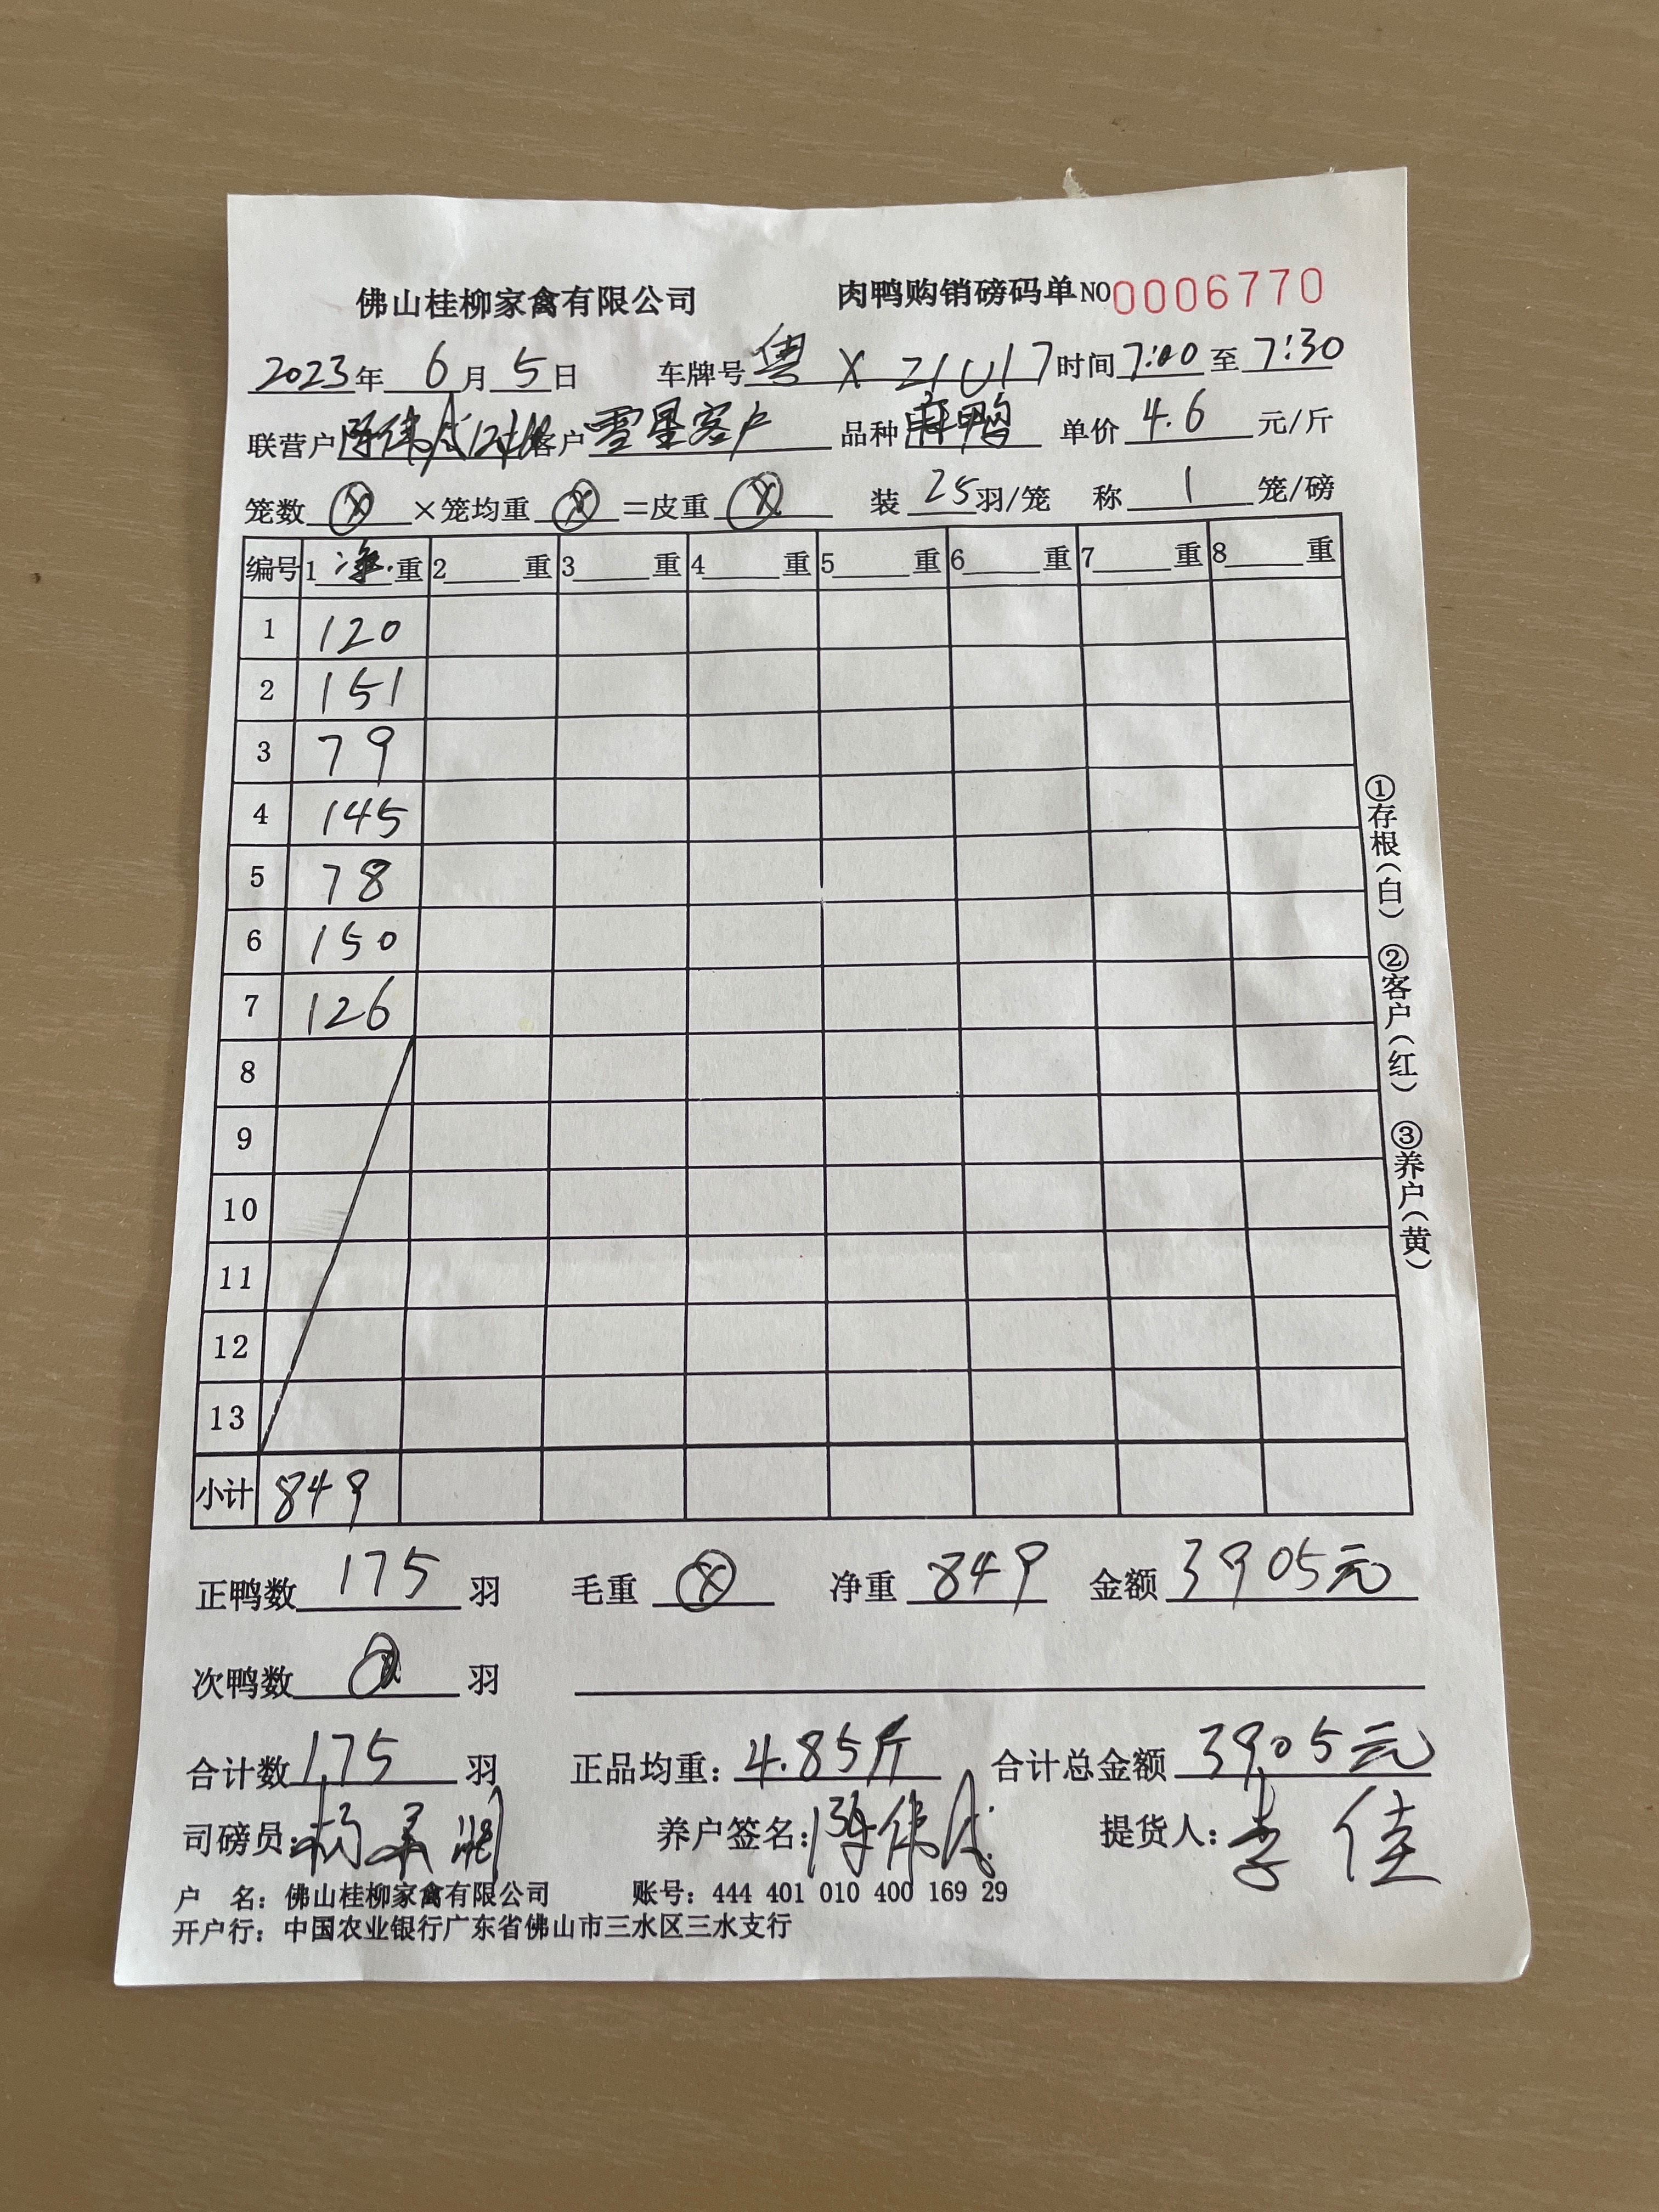 佛山桂柳家禽有限公司 肉鸭购销磅码单 NO 0006770
2023年 6月 5日 车牌号 粤 X 21U17 时间 7:00 至 7:30
联营户 陈伟 客户 雪星客户 品种 麻鸭 单价 4.6 元/斤
笼数 ⓧ ×笼均重 ⓧ =皮重 ⓧ 装 25 羽/笼 称 1 笼/磅
编号 1 净 重 2 重 3 重 4 重 5 重 6 重 7 重 8 重
1 120
2 151
3 79
4 145
5 78
6 150
7 126
8
9
10
11
12
13
小计 849
①存根(白) ②客户(红) ③养户(黄)
正鸭数 175 羽 毛重 ⓧ 净重 849 金额 3905元
次鸭数 羽
合计数 175 羽 正品均重: 4.85斤 合计总金额 3905元
司磅员: 杨 养户签名: 陈伟 提货人: 李佳
户 名: 佛山桂柳家禽有限公司 账号: 444 401 010 400 169 29
开户行: 中国农业银行广东省佛山市三水区三水支行